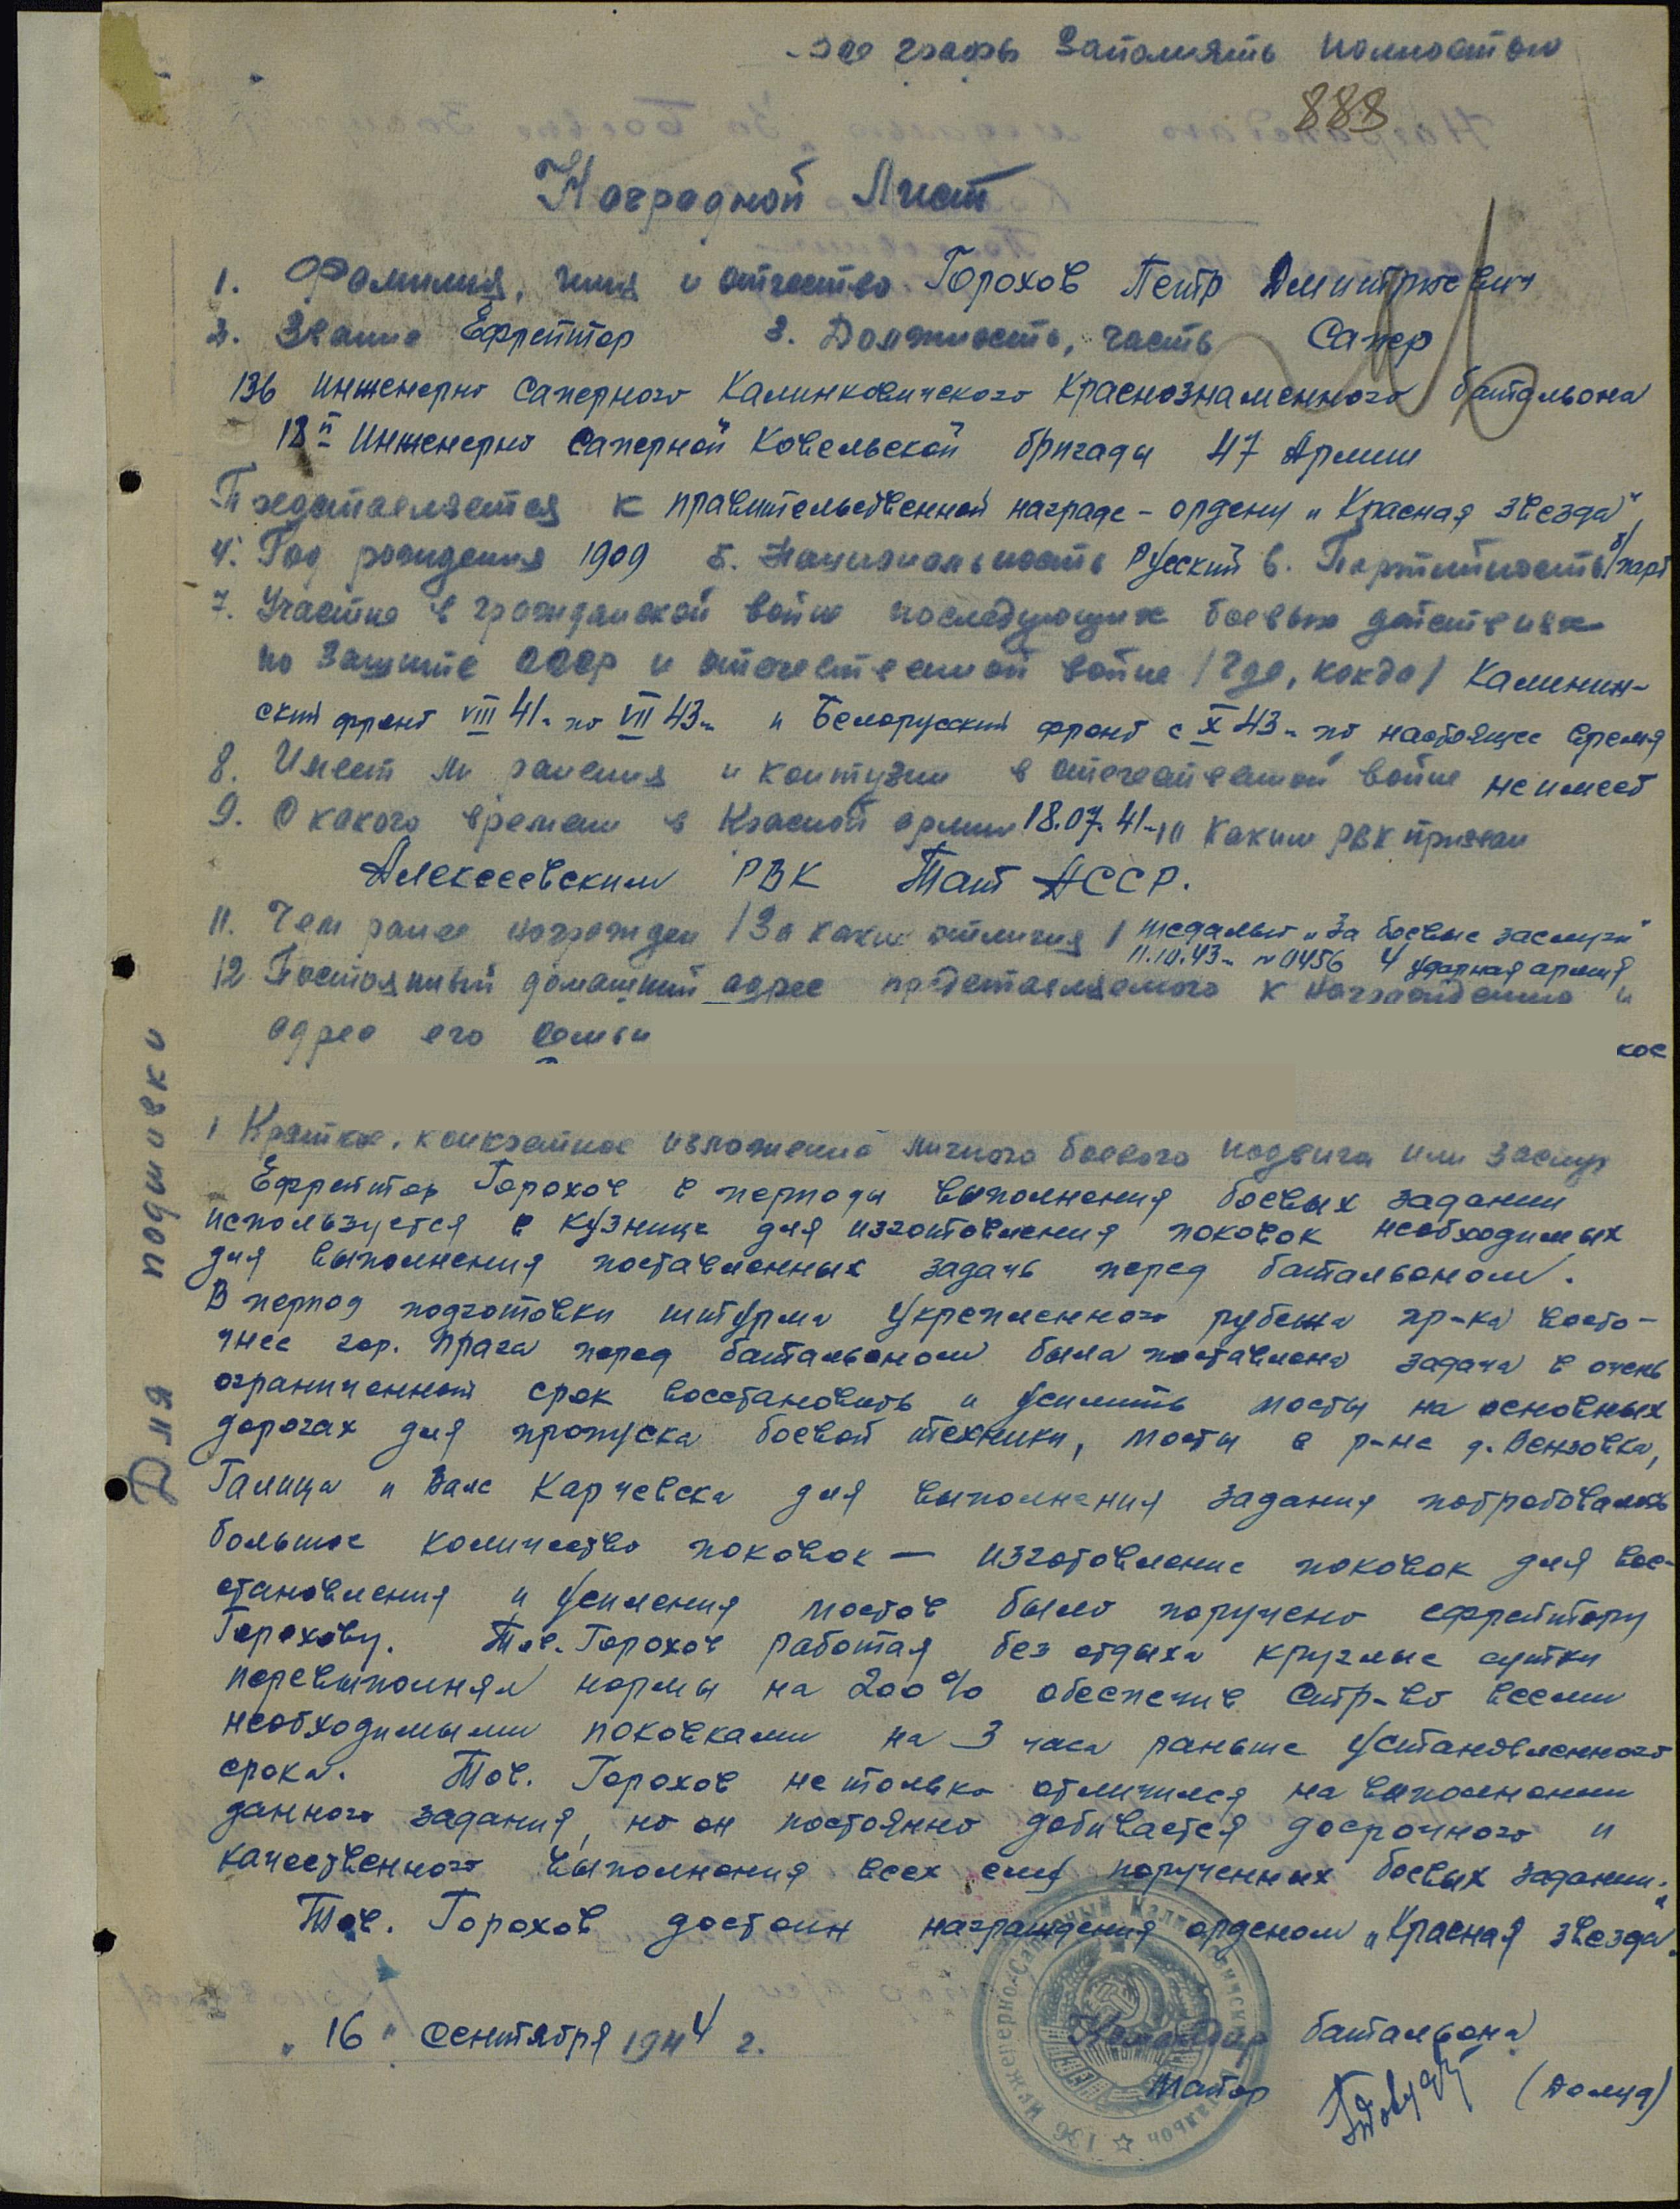 все графы Заполнять полностью
888
Наградной Лист
1. Фамилия, имя и отчество Горохов Петр Дмитриевич
2. Звание Ефрейтор 3. Должность, часть Сапер
136 Инженерно Саперного Калинковичского Краснознаменного батальона
18й Инженерно Саперной Ковельской бригады 47 Армии
Представляется к правительственной награде - ордену „Красная звезда"
4. Год рождения 1909 5. Национальность Русский 6. Партийность б/парт
7. Участие в гражданской войне последующих боевых действиях
по защите СССР и отечественной войне /где, когда/ Калинин-
ский фронт VIII 41г. по VII 43г. и Белорусский фронт с X 43г. по настоящее время
8. Имеет ли ранения и контузии в отечественной войне не имеет
9. С какого времени в Красной армии 18.07.41г. 10 Каким РВК призван
Алексеевским РВК Тат АССР.
11. Чем ранее награжден /За какие отличия/ медалью „За боевые заслуги"
11.10.43г. № 0456 4 ударная армия
12 Постоянный домашний адрес представляемого к награждению и
адрес его семьи
кое
1 Краткое, конкретное изложение личного боевого подвига или заслуг
Ефрейтор Горохов в периоды выполнения боевых задании
используется в кузнице для изготовления поковок необходимых
для выполнения поставленных задачь перед батальоном.
В период подготовки штурма укрепленного рубежа пр-ка восто-
чнее гор. Прага перед батальоном была поставлена задача в очень
ограниченный срок восстановить и усилить мосты на основных
дорогах для пропуска боевой техники, мосты в р-не д.
Галица и Карчевска для выполнения задания потребовалось
большое количество поковок — изготовление поковок для вос-
становления и усиления мостов было поручено ефрейтору
Горохову. Тов. Горохов работая без отдыха круглые сутки
перевыполнял нормы на 200% обеспечив стр-во всеми
необходимыми поковками на 3 часа раньше установленного
срока. Тов. Горохов не только отличился на выполнении
данного задания, но он постоянно добивается досрочного и
качественного выполнения всех ему порученных боевых задании.
Тов. Горохов достоин награждения орденом „Красная звезда".
„16" Сентября 1944 г.
Командир батальона
Майор
Для подшивки
136 Инженерно-Саперный батальон